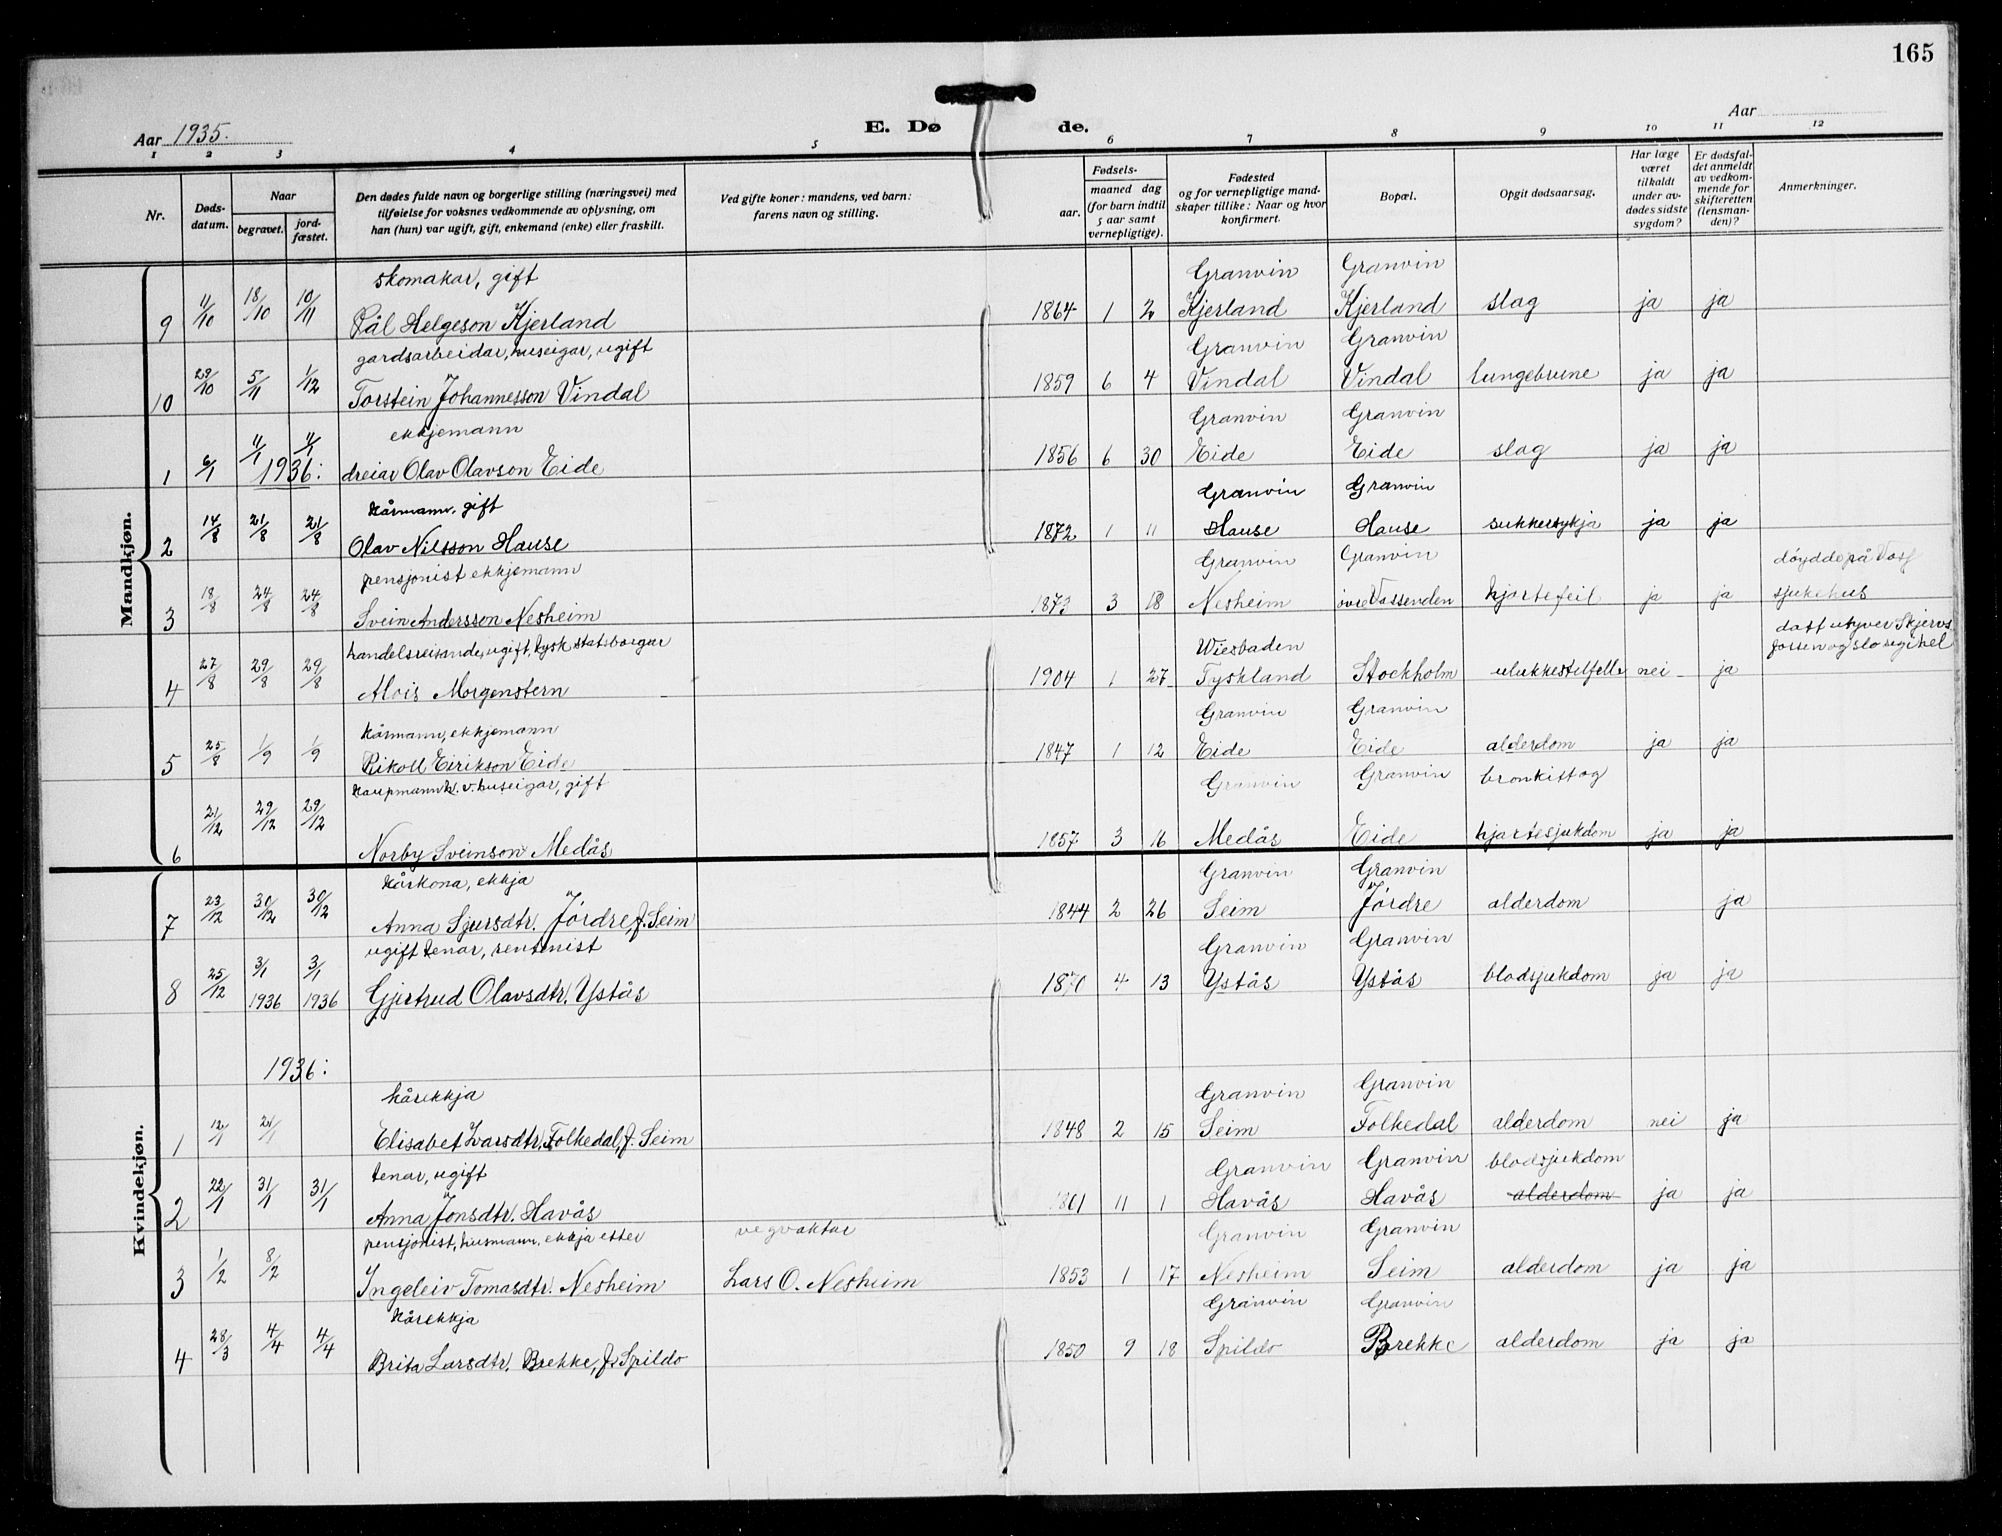 165
Aar 1935.
E. Dø de.
Aar
1 2 3 4 5 6 7 8 9 10 11 12
Nr.
Døds-
datum.
Naar
begravet.
jord-
fæstet.
Den dødes fulde navn og borgerlige stilling (næringsvei) med
tilføielse for voksnes vedkommende av oplysning, om
han (hun) var ugift, gift, enkemand (enke) eller fraskilt.
Ved gifte koner: mandens, ved barn:
farens navn og stilling.
Fødsels-
aar.
maaned dag
(for barn indtil
5 aar samt
vernepligtige).
Fødested
og for vernepligtige mand-
skaper tillike: Naar og hvor
konfirmert.
Bopæl.
Opgit dødsaarsag.
Har læge
været
tilkaldt
under av-
dødes sidste
sygdom?
Er dødsfal-
det anmeldt
av vedkom-
mende for
skifteretten
(lensman-
den)?
Anmerkninger.
Mandkjøn.
skomakar, gift Granvin Granvin
9 11/10 18/10 10/11 Pål Helgeson Kjerland 1864 1 2 Kjerland Kjerland slag ja ja
gardsarbeidar, huseigar, ugift Granvin Granvin
10 29/10 5/11 1/12 Torstein Johannesson Vindal 1859 6 4 Vindal Vindal lungebrune ja ja
ekkjemann Granvin Granvin
1 6/1 11/1 11/1 dreiar Olav Olavson Eide 1856 6 30 Eide Eide slag ja ja
1936:
Kårmann, gift Granvin Granvin
2 14/8 21/8 21/8 Olav Nilsson Hause 1872 1 11 Hause Hause sukkersykja ja ja
pensjonist ekkjemann Granvin Granvin døydde på Voss
3 18/8 24/8 24/8 Svein Andersson Nesheim 1873 3 18 Nesheim øvre Vassenden hjartefeil ja ja sjukehus
handelsreisande, ugift, tysk statsborgar Wiesbaden datt utyver Skjervs
fossen og slo seg ihel
4 27/8 29/8 29/8 Alois Morgenstern 1904 1 27 Tyskland Stockholm ulukkestilfelle nei ja
Kårmann, ekkjemann Granvin Granvin
5 25/8 1/9 1/9 Rikoll Eirikson Eide 1847 1 12 Eide Eide alderdom ja ja
Kaupmann h. v. huseigar, gift Granvin Granvin bronkitt og
6 21/12 29/12 29/12 Norby Sveinson Medås 1857 3 16 Medås Eide hjartesjukdom ja ja
Kvindekjøn.
Kårkona, ekkja Granvin Granvin
7 23/12 30/12 30/12 Anna Sjursdtr. Jördre, f. Seim 1844 2 26 Seim Jördre alderdom ja
ugift tenar, rentenist Granvin Granvin
8 25/12 3/1 1936 3/1 1936 Gjertrud Olavsdtr. Ystås 1870 4 13 Ystås Ystås blodsjukdom ja ja
1936:
kårekkja Granvin Granvin
1 12/1 21/1 Elisabet Ivarsdtr. Folkedal, f. Seim 1848 2 15 Seim Folkedal alderdom nei ja
tenar, ugift Granvin Granvin blodsjukdom
2 22/1 31/1 31/1 Anna Jonsdtr. Havås 1861 11 1 Havås Havås alderdom ja ja
pensjonist, husmann, ekkja etter vegvaktar Granvin Granvin
3 1/2 8/2 Ingeleiv Tomasdtr. Nesheim Lars O. Nesheim 1853 1 17 Nesheim Seim alderdom ja ja
Kårekkja Granvin Granvin
4 28/3 4/4 4/4 Brita Larsdtr. Brekke, f. Spildo 1850 9 18 Spildo Brekke alderdom ja ja